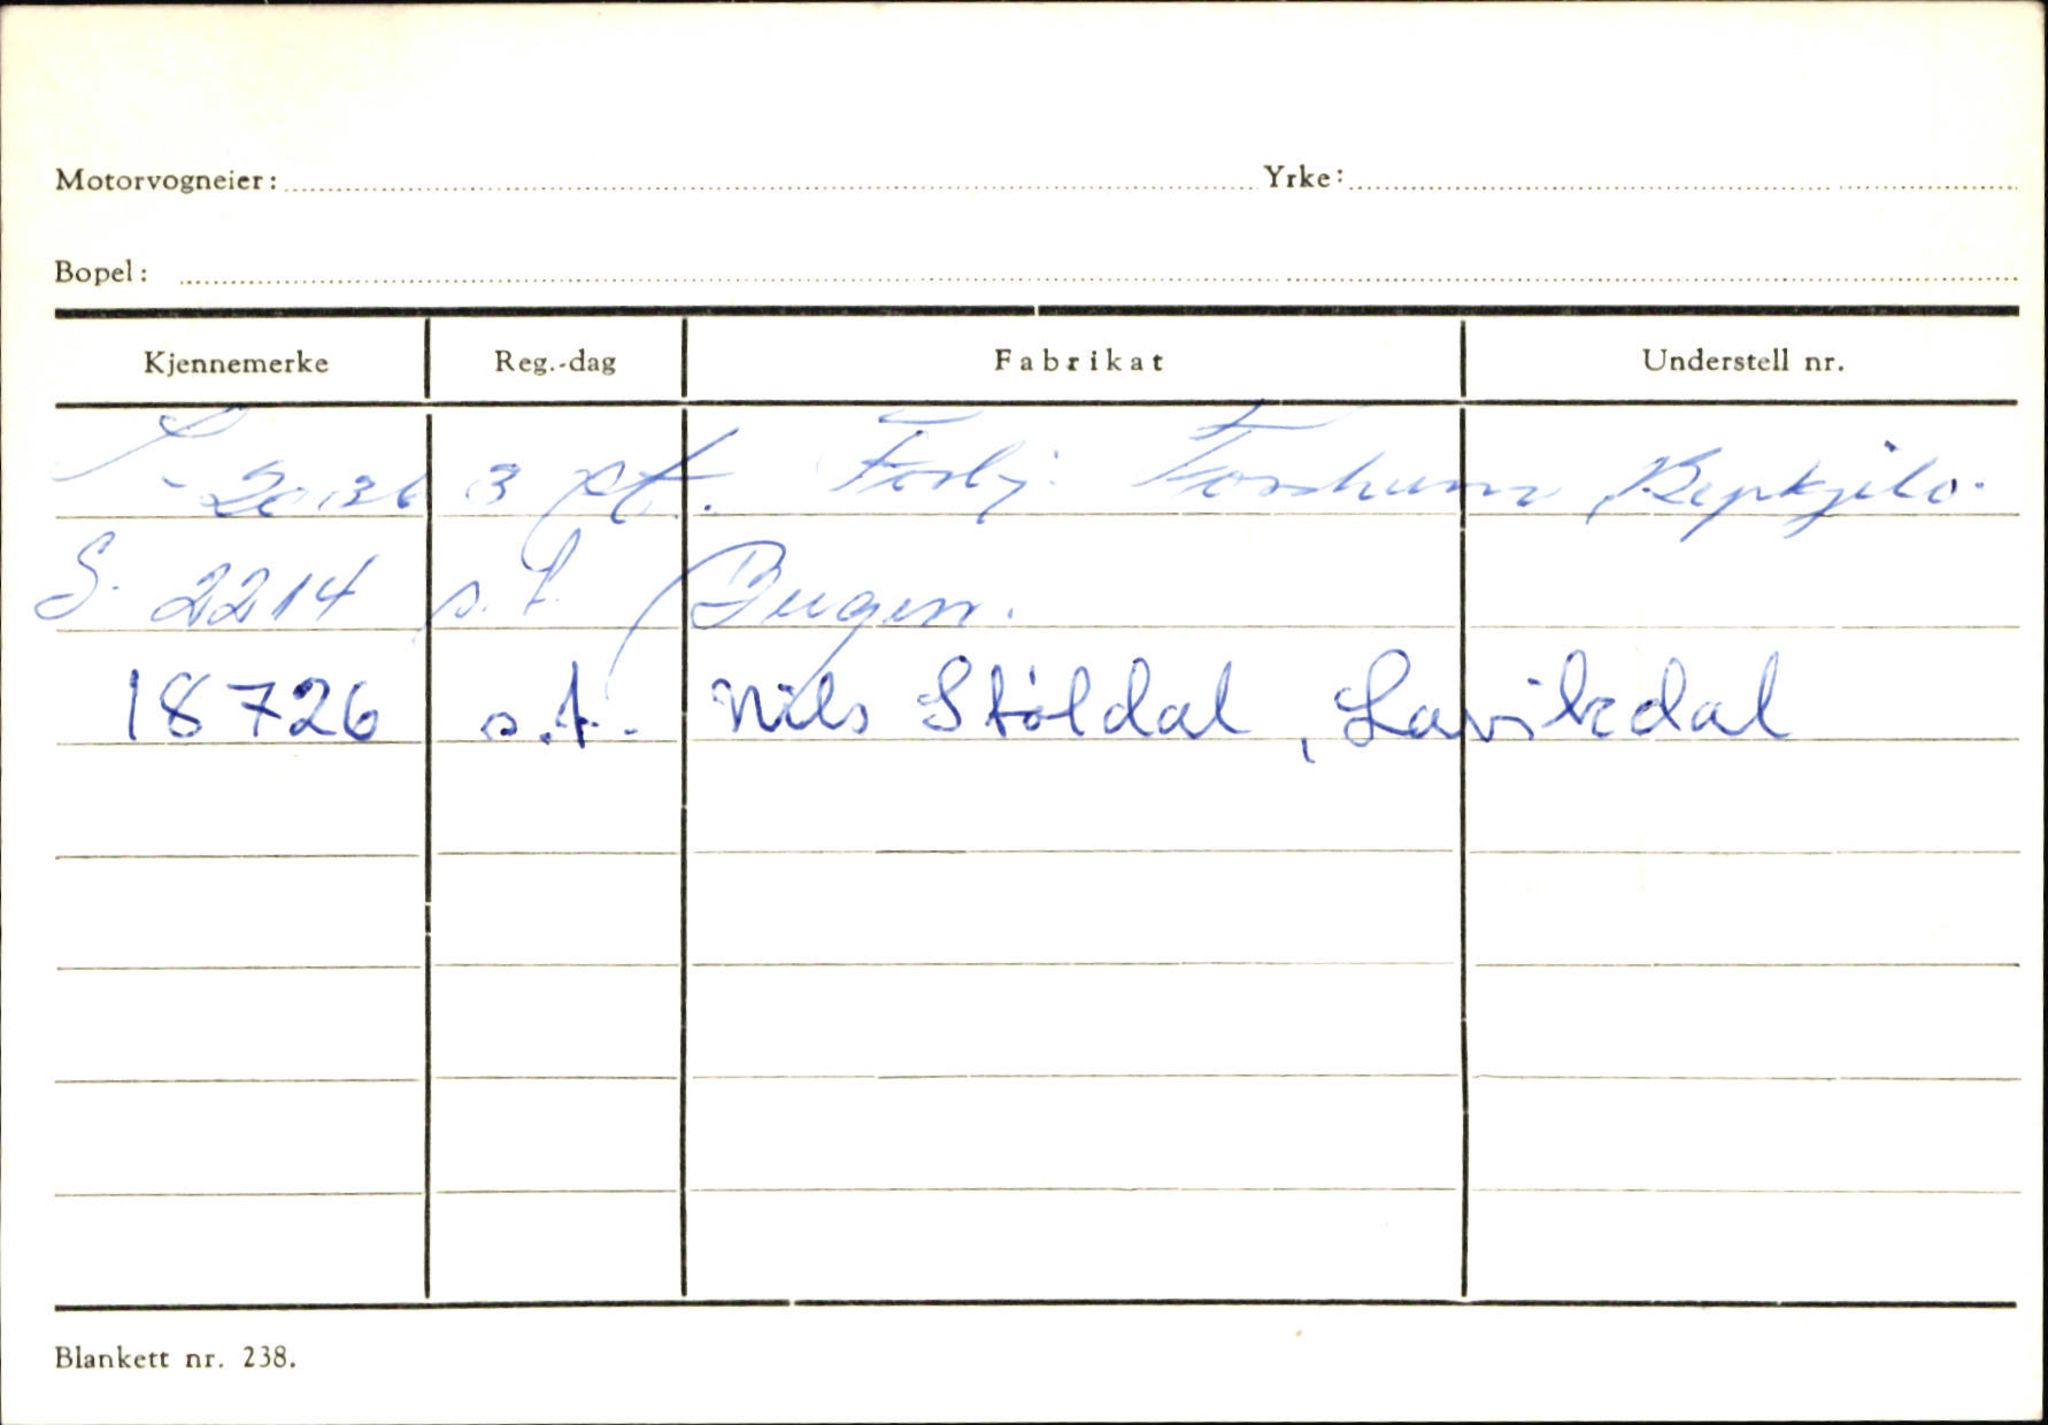 Motorvogneier: Yrke:
Bopel:
Kjennemerke Reg.-dag Fabrikat Understell nr.
S-20136
S. 2214 s.t.
18726 s.t. Nils Støldal, Lavikdal
Blankett nr. 238.